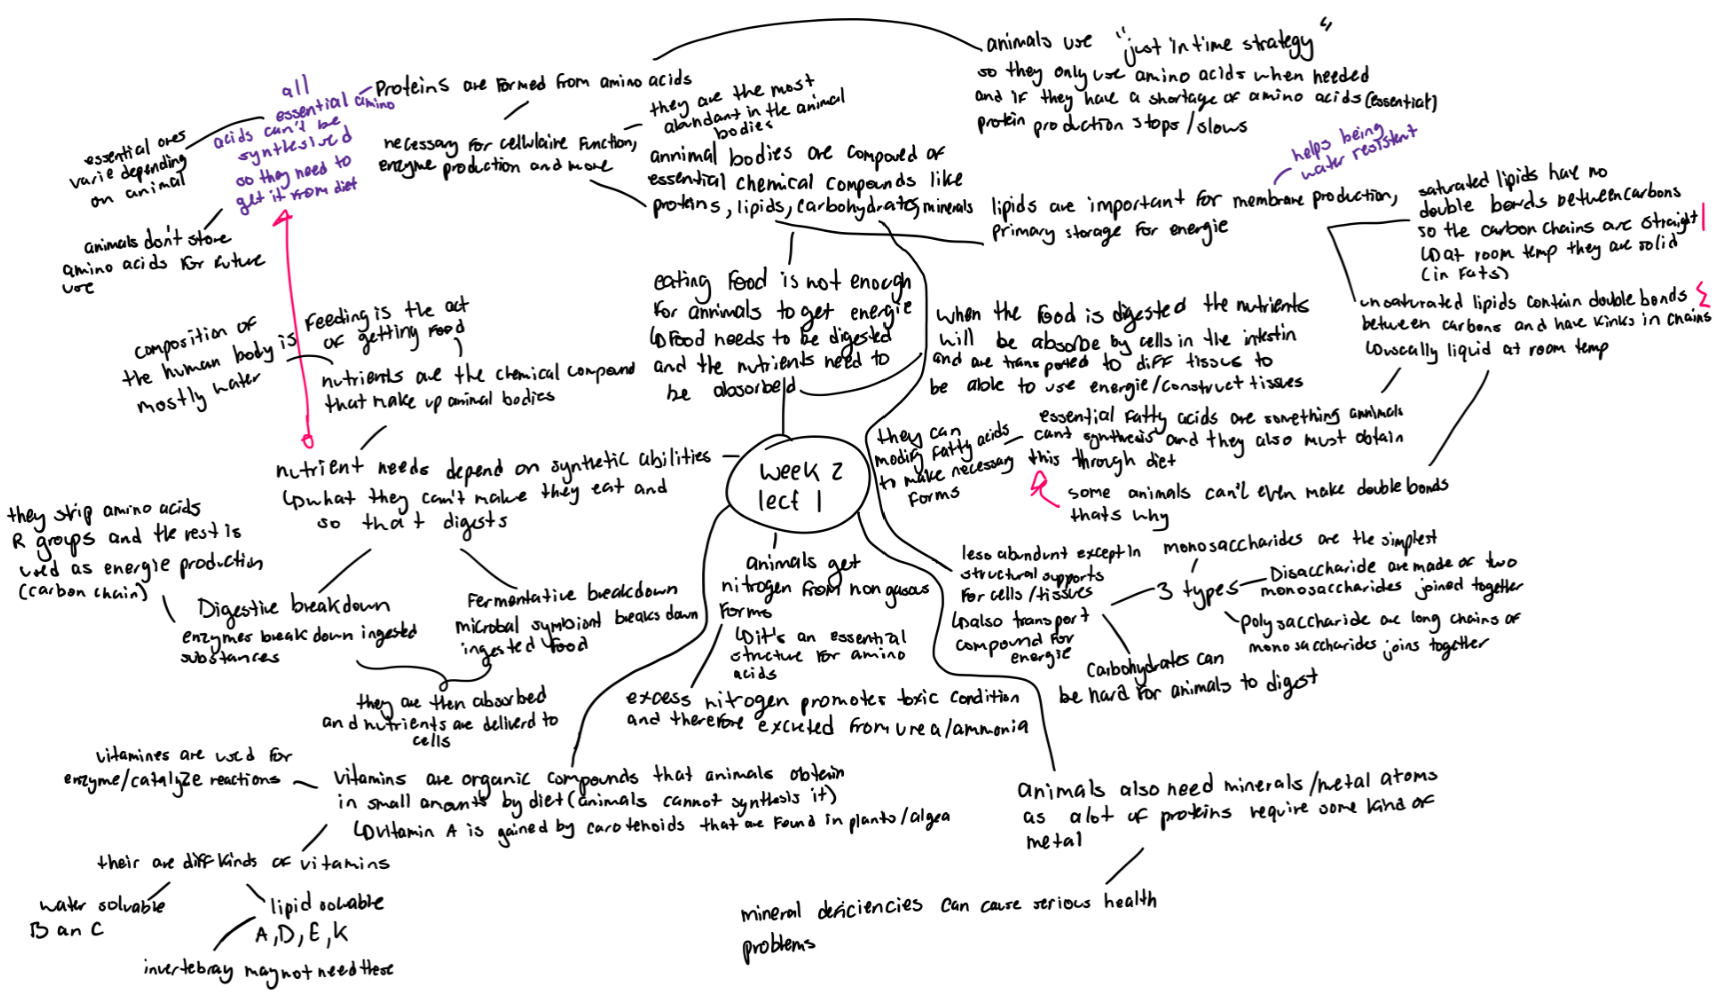 week 2
lect 1
animals use "just in time strategy"
so they only use amino acids when needed
and if they have a shortage of amino acids (essential)
protein production stops/slows
Proteins are formed from amino acids
all
essential amino
acids can't be
synthesised
so they need to
get it from diet
essential ones
varie depending
on animal
animals don't store
amino acids for future
use
necessary for cellulaire function,
enzyme production and more
they are the most
abundant in the animal
bodies
annimal bodies are composed of
essential chemical compounds like
proteins, lipids, carbohydrates, minerals
lipids are important for membrane production,
primary storage for energie
helps being
water resistent
saturated lipids have no
double bonds between carbons
so the carbon chains are straight
↳at room temp they are solid
(in fats)
unsaturated lipids contain double bonds
between carbons and have kinks in chains
↳usually liquid at room temp
eating food is not enough
for annimals to get energie
↳Food needs to be digested
and the nutrients need to
be absorbed
when the food is digested the nutrients
will be absorbe by cells in the intestin
and are transported to diff tissus to
be able to use energie/construct tissues
essential fatty acids are something annimals
cant synthesis and they also must obtain
this through diet
they can
modify fatty acids
to make necessary
forms
some animals can't even make double bonds
thats why
composition of
the human body is
mostly water
feeding is the act
of getting food
nutrients are the chemical compound
that make up animal bodies
nutrient needs depend on synthetic abilities
↳what they can't make they eat and
so that digests
they strip amino acids
R groups and the rest is
used as energie production
(carbon chain)
Digestive breakdown
enzymes break down ingested
substances
Fermentative breakdown
microbal symbiont breaks down
ingested food
they are then absorbed
and nutrients are deliverd to
cells
animals get
nitrogen from non gasous
forms
↳it's an essential
structure for amino
acids
excess nitrogen promotes toxic condition
and therefore excreted from urea/ammonia
less abundunt except in
structural supports
for cells/tissues
↳also transport
compound for
energie
3 types
monosaccharides are the simplest
Disaccharide are made of two
monosaccharides joined together
polysaccharide are long chains of
monosaccharides joins together
Carbohydrates can
be hard for animals to digest
vitamines are used for
enzyme/catalyze reactions
vitamins are organic compounds that animals obtain
in small amounts by diet (animals cannot synthesis it)
↳vitamin A is gained by carotenoids that are found in plants/algea
their are diff kinds of vitamins
water soluable
B an C
lipid soluable
A, D, E, K
invertebray may not need these
animals also need minerals/metal atoms
as alot of proteins require some kind of
metal
mineral deficiencies can cause serious health
problems